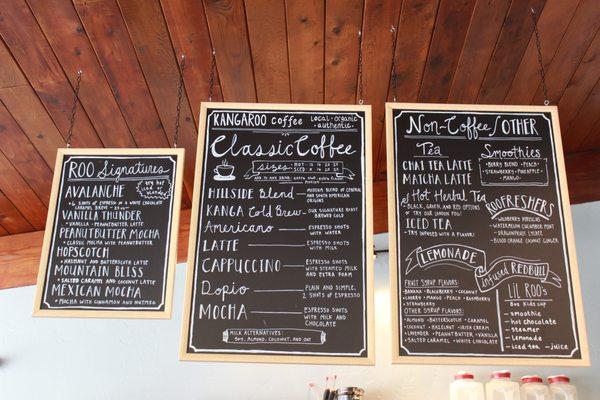 ROO Signatures
AVALANCHE
try it iced
VANILLA THUNDER
VANILLA · PEANUTBUTTER LATTE
PEANUTBUTTER MOCHA
CLASSIC MOCHA WITH PEANUTBUTTER
HOPSCOTCH
HAZELNUT AND BUTTERSCOTCH LATTE
MOUNTAIN BLISS
SALTED CARAMEL AND COCONUT LATTE
MEXICAN MOCHA
MOCHA WITH CINNAMON AND NUTMEG
KANGAROO coffee
local
organic
authentic
Classic Coffee
SIZES
HILLSIDE Blend
MEDIUM BLEND OF CENTRAL
KANGA Cold Brew
OUR SIGNATURE ROAST
BREWED COLD
Americano
ESPRESSO SHOTS
WITH WATER
LATTE
ESPRESSO SHOTS
WITH MILK
CAPPUCCINO
ESPRESSO SHOTS
WITH STEAMED MILK
AND EXTRA FOAM
Dopio
PLAIN AND SIMPLE,
2 SHOTS OF ESPRESSO
MOCHA
ESPRESSO SHOTS
WITH MILK AND
CHOCOLATE
MILK ALTERNATIVES:
SOY, ALMOND, COCONUT, AND OAT
Non-Coffee/OTHER
Tea
CHAI TEA LATTE
MATCHA LATTE
Hot Herbal Tea
BLACK, GREEN, AND RED OPTIONS
TRY OUR LONDON FOG!
ICED TEA
TRY INFUSED WITH A FLAVOR!
Smoothies
WILDBERRY · PEACH
STRAWBERRY · PINEAPPLE
MANGO
ROOFRESHERS
WILDBERRY HIBISCUS
WATERMELON CUCUMBER MINT
DRAGONFRUIT LYCHEE
BLOOD ORANGE COCONUT GINGER
LEMONADE
Infused REDBULL
FRUIT SYRUP FLAVORS:
BANANA · BLACKBERRY · COCONUT
CHERRY · MANGO · PEACH · RASPBERRY
STRAWBERRY
OTHER SYRUP FLAVORS:
ALMOND · BUTTERSCOTCH · CARAMEL
COCONUT · HAZELNUT · IRISH CREAM
LAVENDER · PEANUT BUTTER · VANILLA
SALTED CARAMEL · WHITE CHOCOLATE
LIL ROO'S
8oz KIDS CUP
- smoothie
- hot chocolate
- steamer
- lemonade
- iced tea - juice